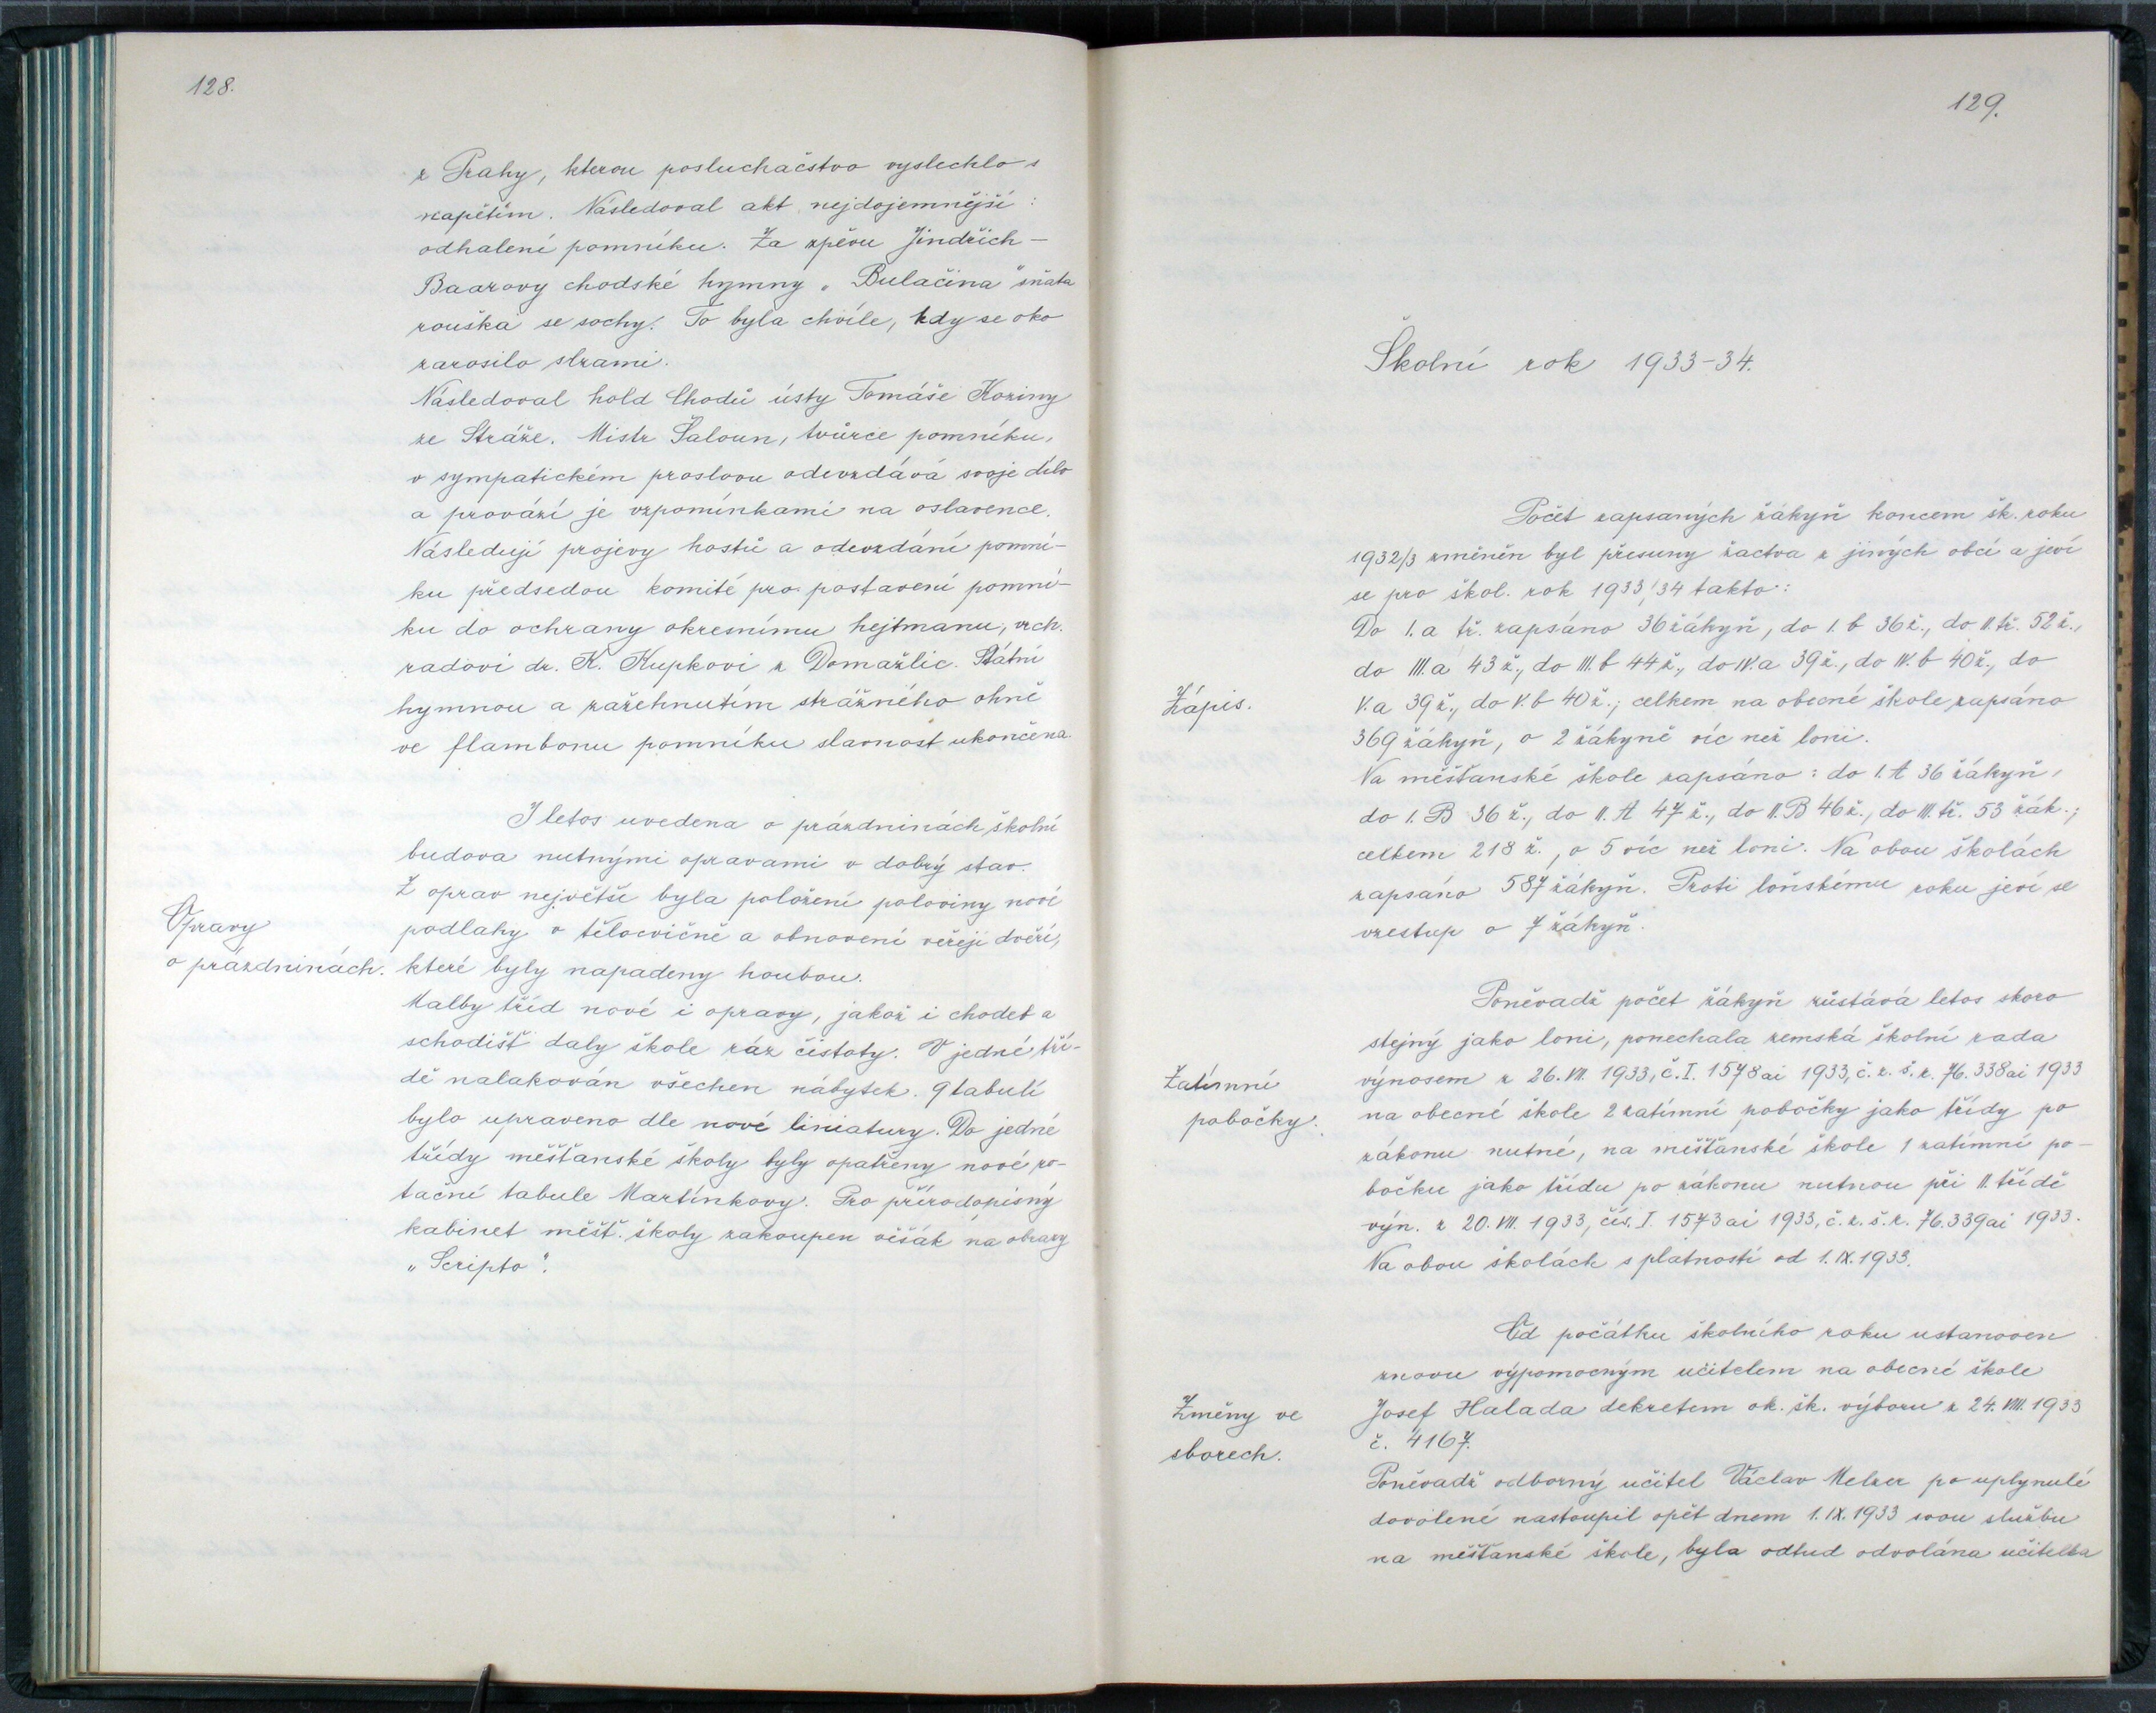 128.
z Prahy, kterou posluchačstvo vyslechlo s
napětím. Následoval akt nejdojemnější:
odhalení pomníku. Za zpěvu Jindřich-
Baarovy chodské hymny „Bulačina" sňata
rouška se sochy. To byla chvíle, kdy se oko
zarosilo slzami.
Následoval hold Chodů ústy Tomáše Koziny
ze Stráže. Mistr Šaloun, tvůrce pomníku,
v sympatickém proslovu odevzdává svoje dílo
a provází je vzpomínkami na oslavence.
Následují projevy hostů a odevzdání pomní-
ku předsedou komité pro postavení pomní-
ku do ochrany okresnímu hejtmanu, vrch.
radovi dr. K. Kupkovi z Domažlic. Státní
hymnou a zažehnutím strážného ohně
ve flambonu pomníku slavnost ukončena.
I letos uvedena o prázdninách školní
budova nutnými opravami v dobrý stav.
Z oprav největší byla položení poloviny nové
Opravy
o prázdninách.
podlahy v tělocvičně a obnovení veřejí dveří,
které byly napadeny houbou.
Malby tříd nové i opravy, jakož i chodeb a
schodišť daly škole ráz čistoty. V jedné tří-
dě nalakován všechen nábytek. 9 tabulí
bylo upraveno dle nové liniatury. Do jedné
třídy měšťanské školy byly opatřeny nové ro-
tační tabule Martínkovy. Pro přírodopisný
kabinet měšť. školy zakoupen věšák na obrazy
„Scripto".
129.
Školní rok 1933-34.
Počet zapsaných žákyň koncem šk. roku
1932/3 změněn byl přesuny žactva z jiných obcí a jeví
se pro škol. rok 1933/34 takto:
Do 1.a tř. zapsáno 36 žákyň, do 1.b 36 ž., do II.tř. 52 ž.,
do III.a 43 ž., do III.b 44 ž., do IV.a 39 ž., do IV.b 40 ž., do
Zápis.
V.a 39 ž., do V.b 40 ž.; celkem na obecné škole zapsáno
369 žákyň, o 2 žákyně víc než loni.
Na měšťanské škole zapsáno: do 1.A 36 žákyň,
do 1.B 36 ž., do II.A 47 ž., do II.B 46 ž., do III.tř. 53 žák.;
celkem 218 ž., o 5 víc než loni. Na obou školách
zapsáno 587 žákyň. Proti loňskému roku jeví se
vzestup o 7 žákyň.
Poněvadž počet žákyň zůstává letos skoro
stejný jako loni, ponechala zemská školní rada
Zatímní
pobočky.
výnosem z 26.VII. 1933, č.I. 1578 ai 1933, č.z.š.r. 76.338 ai 1933
na obecné škole 2 zatímní pobočky jako třídy po
zákonu nutné, na měšťanské škole 1 zatímní po-
bočku jako třídu po zákonu nutnou při II. třídě
výn. z 20. VII. 1933, čís. I. 1573 ai 1933, č.z.š.r. 76.339 ai 1933.
Na obou školách s platností od 1.IX.1933.
Od počátku školního roku ustanoven
znovu výpomocným učitelem na obecné škole
Změny ve
sborech.
Josef Halada dekretem ok. šk. výboru z 24.VIII.1933
č. 4167.
Poněvadž odborný učitel Václav Melzer po uplynulé
dovolené nastoupil opět dnem 1.IX.1933 svou službu
na měšťanské škole, byla odtud odvolána učitelka